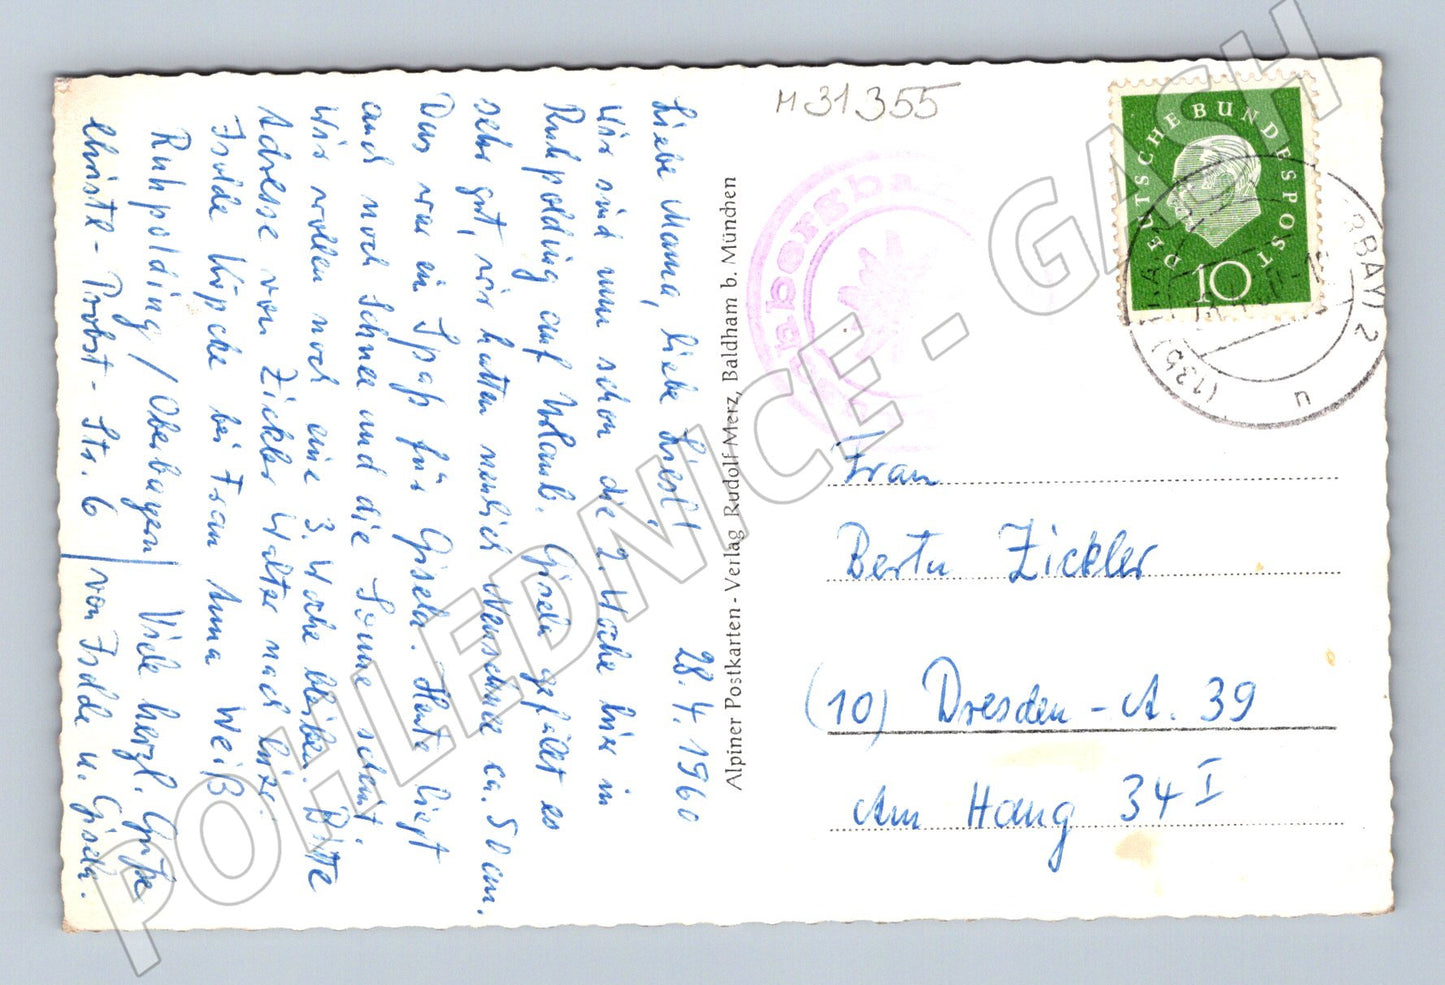 M31355
DEUTSCHE BUNDESPOST
10
(13b)
RBAY) 2
u
Alpiner Postkarten - Verlag Rudolf Merz, Baldham b. München
28.4.1960
Liebe Mama, liebe Liesl!
Wir sind nun schon die 2. Woche hier in
Ruhpolding auf Urlaub. Gisela gefällt es
sehr gut, wir hatten neulich Neuschnee ca. 50 cm.
Das war ein Spaß für Gisela. Heute liegt
auch noch Schnee und die Sonne scheint.
Wir wollen noch eine 3. Woche bleiben. Bitte
Adresse von Zickler Walter nach hier:
Isolde Köpcke bei Frau Anna Weiß
Ruhpolding / Oberbayern Viele herzl. Grüße
Christl-Probst-Str. 6 von Isolde u. Gisela.
Frau
Berta Zickler
(10) Dresden - A. 39
Am Hang 34 I
POHLEDNICE - GASH